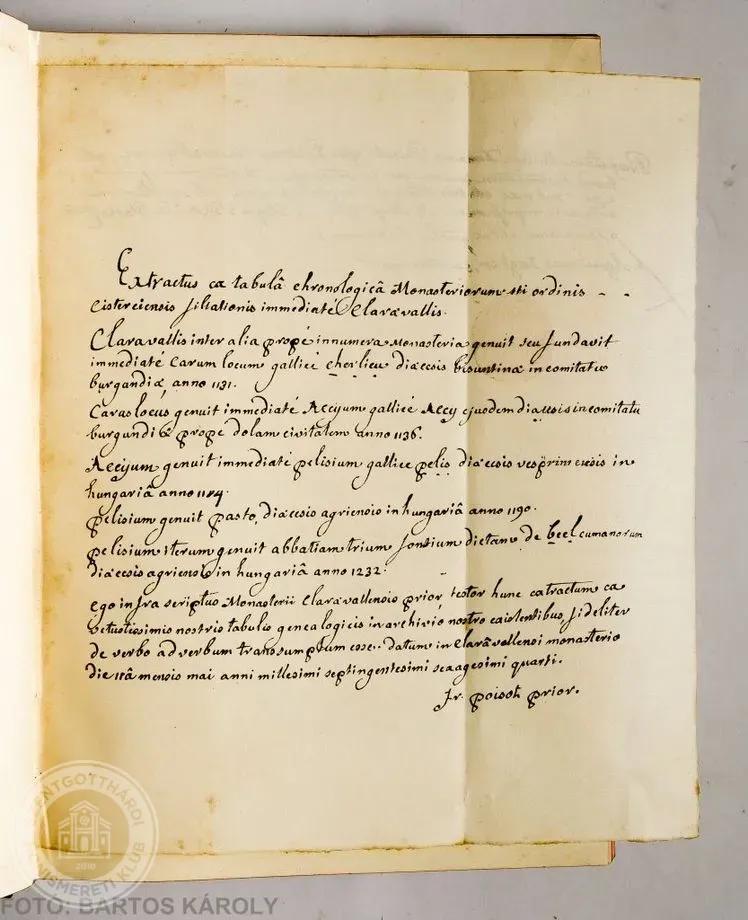 Extractus ex tabulâ chronologicâ Monasteriorum sti ordinis - -
Cisterciensis filiationis immediaté Claraevallis.
Claravallis inter alia propé innumera Monasteria genuit seu fundavit
immediaté Carum locum gallicé cherlieu diaecesis bisuntinae in comitatu
burgundiae, anno 1131.
Carus locus, genuit immediaté Accyum gallicé Accy ejusdem diaecesis in comitatu
burgundiae prope dolam civitatem anno 1136.
Accyum genuit immediaté pelisium gallice pelis diaecesis vesprimensis in
hungariâ anno 1184.
pelisium genuit pasto, diaecesis agriensis in hungariâ anno 1190.
pelisium iterum genuit abbatiam trium fontium dictam de beel cumanorum
diaecesis agriensis in hungariâ anno 1232.
ego infra scriptus Monasterii Claraevallensis prior, testor hunc extractum ex
vetustissimis nostris tabulis genealogicis in archiviô nostro existentibus fideliter
de verbo ad verbum transumptum esse. datum in Claraevallensi monasterio
die mensis mai anni millesimi septingentesimi sexagesimi quarti.
fr. poisot prior.
ENTGOTTHÁRDI
ISMERETI KLUB
2010
FOTO: BARTOS KÁROLY